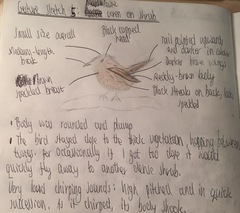 Gesture sketch 5. wren on shrub
Small size overall
Black capped
head
Tail pointed upwards
and darker in colour
Medium-length
beak
Darker brown wings
Brown
speckled breast
freckly-brown belly
Black streaks on back, look
speckled
• Body was rounded and plump
• The bird stayed close to the thick vegetation, hopping between
twigs. occasionally if I got too close it would
quickly fly away to another dense shrub.
Very loud chirping sounds: high pitched and in quick
succession, as it chirped, its body shook.